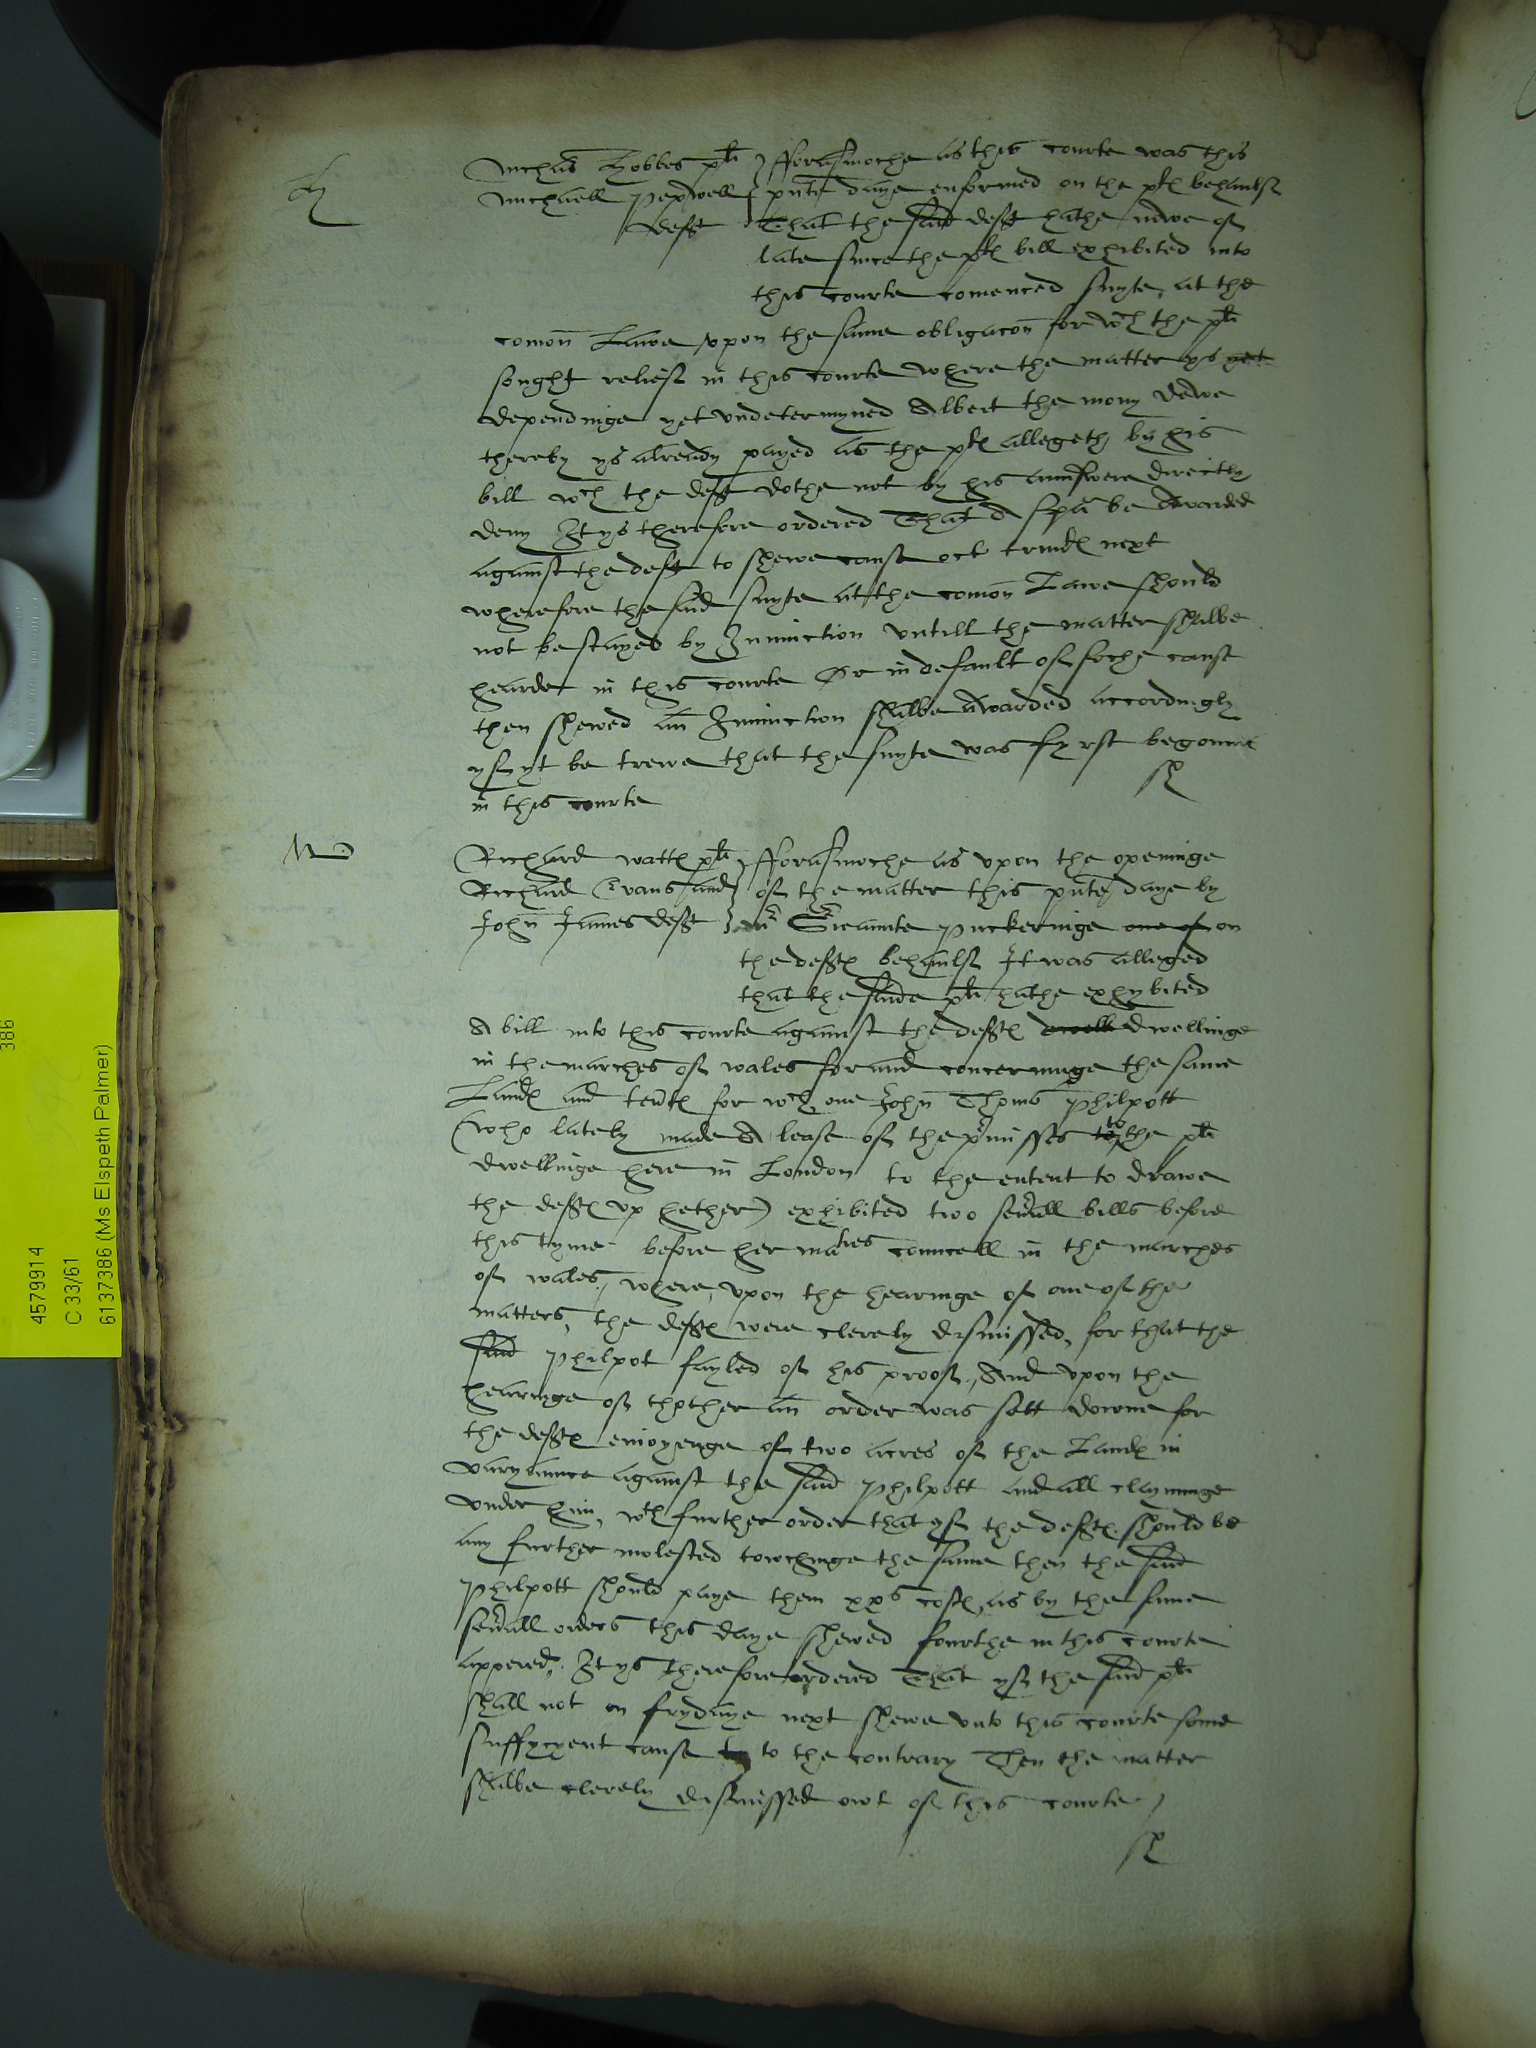 Nichas Hobbes plt
Michaell Pepwell
deft
fforasmoche as this courte was this
pnte daye enformed on the pltes behaulf
That the said deft hathe nowe of
late since the pltes bill exhibited into
this courte comenced suyte at the
comon Lawe upon the same obligacon for wch the plt
sought relief in this courte where the matter ys yet
dependinge yet undetermyned Albeit the mony dewe
thereby ys already payed as the pltes allegeth by his
bill wch the deft dothe not by his aunswere directly
deny It ys therefore ordered That A spa be Awarded
against the deft to shewe cause oct trinites next
wherefore the said suyte at the comon Lawe should
not be stayed by Iniunction untill the matter shalbe
hearde in this courte Or in default of soche cause
then shewed an Iniunction shalbe Awarded accordingly
yf yt be trewe that the suyte was fyrst begonne
in this courte
Richard wattes plt
Richard Evans and
John James deft
fforasmoche as upon the openinge
of the matter this pnte daye by
mr Sreaunte Puckeringe one of on
the deftes behaulf It was alleged
that the saide plt hathe exhybited
A bill into this courte against the deftes dwelli dwellinge
in the marches of wales for and concerninge the same
Landes and tentes for wch one John Thoms Philpott
(who lately made A lease of the pmisses to the plt
dwellinge here in London to the entent to drawe
the deftes up hether) exhibited two severall bills before
this tyme before her maties councell in the marches
of wales, where, upon the hearinge of one of the
matters, the deftes were clerely dismissed, for that the
said Philpot fayled of his proof, And upon the
hearinge of thother an order was sett downe for
the deftes enioyenge of two acres of the Landes in
varyaunce against the said Philpott and all clayminge
under him, wth further order that yf the deftes should be
any further molested towchinge the same then the said
Philpott should paye them xxs costes, as by the same
severall orders this daye shewed fourthe in this courte
appered, It ys therefore ordered That yf the said plt
shall not on frydaye next shewe unto this courte some
suffycyent cause to to the contrary Then the matter
shalbe clerely dismissed owt of this courte
386
4579914
C 33/61
6137386 (Ms Elspeth Palmer)